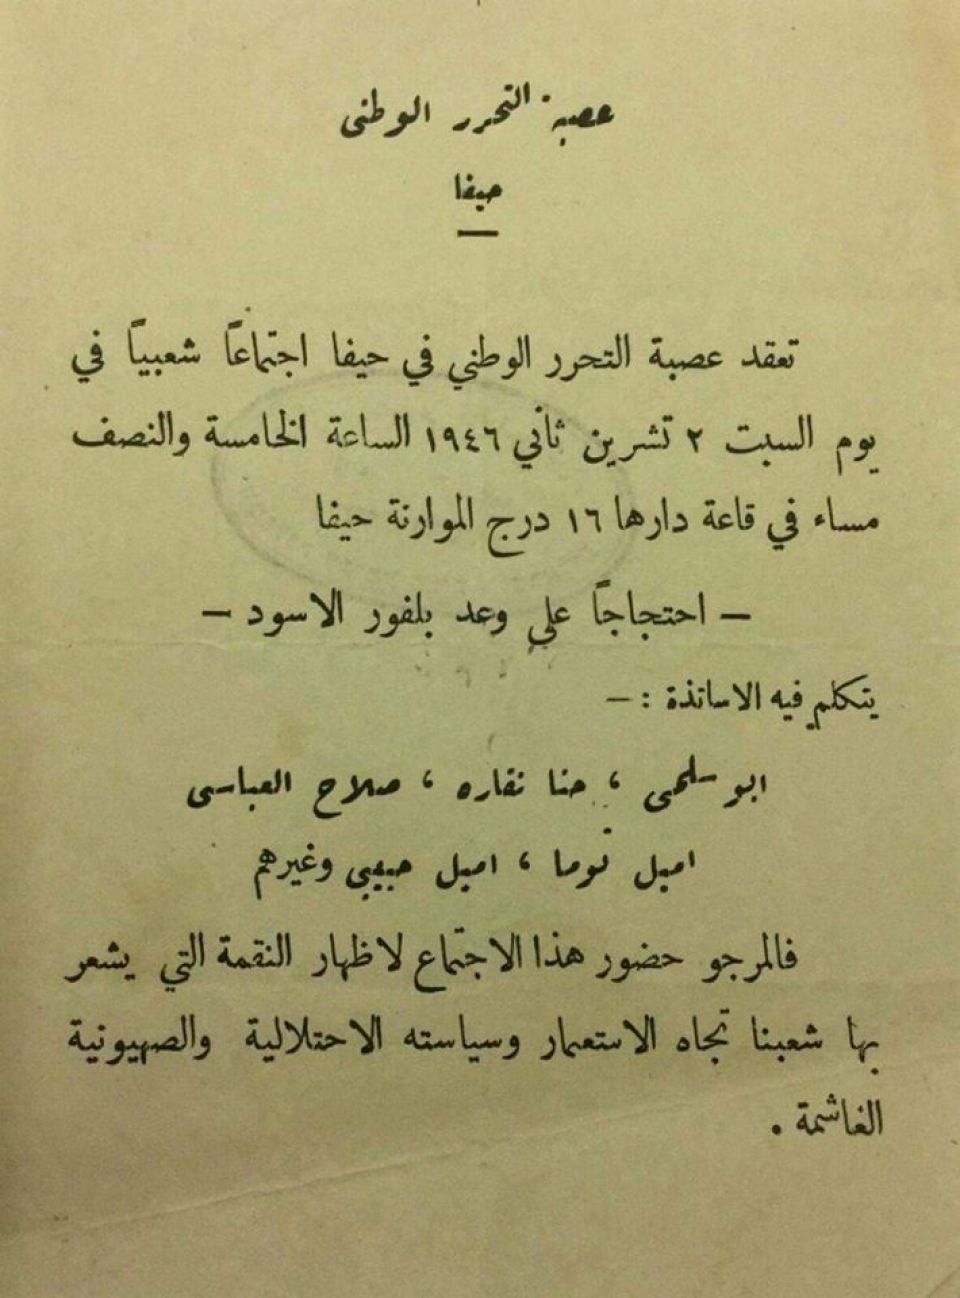 عصبة التحرر الوطني
حيفا
تعقد عصبة التحرر الوطني في حيفا اجتماعاً شعبياً في
يوم السبت ٢ تشرين ثاني ١٩٤٦ الساعة الخامسة والنصف
مساء في قاعة دارها ١٦ درج الموارنة حيفا
— احتجاجاً على وعد بلفور الاسود —
يتكلم فيه الاساتذة : —
ابو سلمى ، حنا نقاره ، صلاح العباسي
اميل توما ، اميل حبيبي وغيرهم
فالمرجو حضور هذا الاجتماع لاظهار النقمة التي يشعر
بها شعبنا تجاه الاستعمار وسياسته الاحتلالية والصهيونية
الغاشمة .